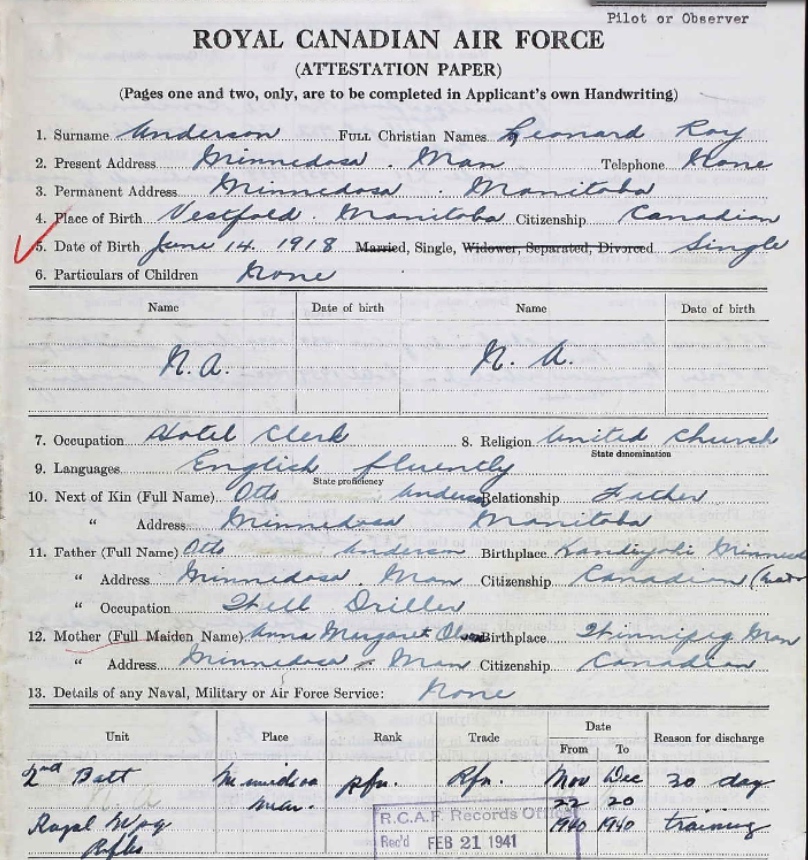 Pilot or Observer
ROYAL CANADIAN AIR FORCE
(ATTESTATION PAPER)
(Pages one and two, only, are to be completed in Applicant's own Handwriting)
1. Surname Anderson FULL Christian Names Leonard Roy
2. Present Address Minnedosa. Man Telephone None
3. Permanent Address Minnedosa. Manitoba
4. Place of Birth Vestfold. Manitoba Citizenship Canadian
5. Date of Birth June 14. 1918 Married, Single, Widower, Separated, Divorced Single
6. Particulars of Children None
Name Date of birth Name Date of birth
N.A. N.A.
7. Occupation Hotel Clerk 8. Religion United Church
State denomination
9. Languages English fluently
State proficiency
10. Next of Kin (Full Name) Otto Anderson Relationship Father
" Address Minnedosa Manitoba
11. Father (Full Name) Otto Anderson Birthplace Kandiyohi
" Address Minnedosa. Man Citizenship Canadian
" Occupation Well Driller
12. Mother (Full Maiden Name) Anna Margaret Olson Birthplace Winnipeg Man
" Address Minnedosa Man Citizenship Canadian
13. Details of any Naval, Military or Air Force Service: None
Unit Place Rank Trade Date Reason for discharge
From To
2nd Batt Rfn. Rfn. Nov Dec 30 day
Man. 22 20
Royal Wpg 1940 1940 training
Rifles
R.C.A.F. Records Office
Rec'd FEB 21 1941